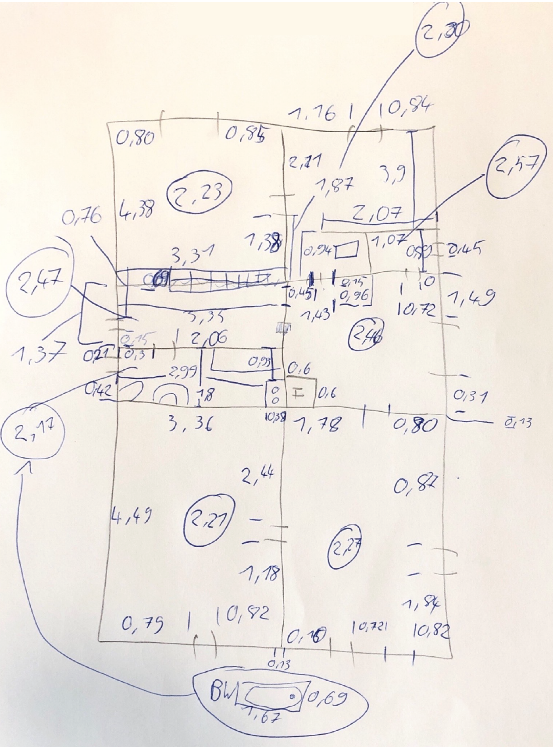 2,80
1,16 | | 0,84
0,80
0,85
2,11
3,9
1,87
2,57
2,23
4,38
2,07
0,76
1,38
1,07
0,94
0,45
3,31
2,47
0,45
0,96
1,49
3,35
1,43
0,72
2,46
1,37
0,21
0,31
2,06
2,99
0,93
0,6
0,42
1,8
I
0,6
0,31
2,17
3,36
0,38
1,78
0,80
0,13
2,44
0,87
4,49
2,21
2,27
1,18
1,84
0,79
0,82
0,10
0,72
0,82
0,13
BW
0,69
1,67